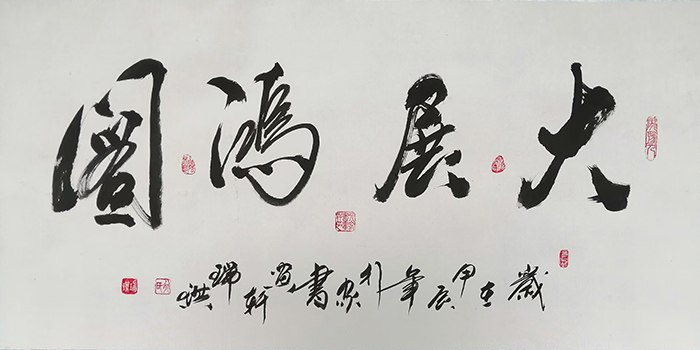 大展鴻圖
歲在甲辰年於京書畫軒瑞琪